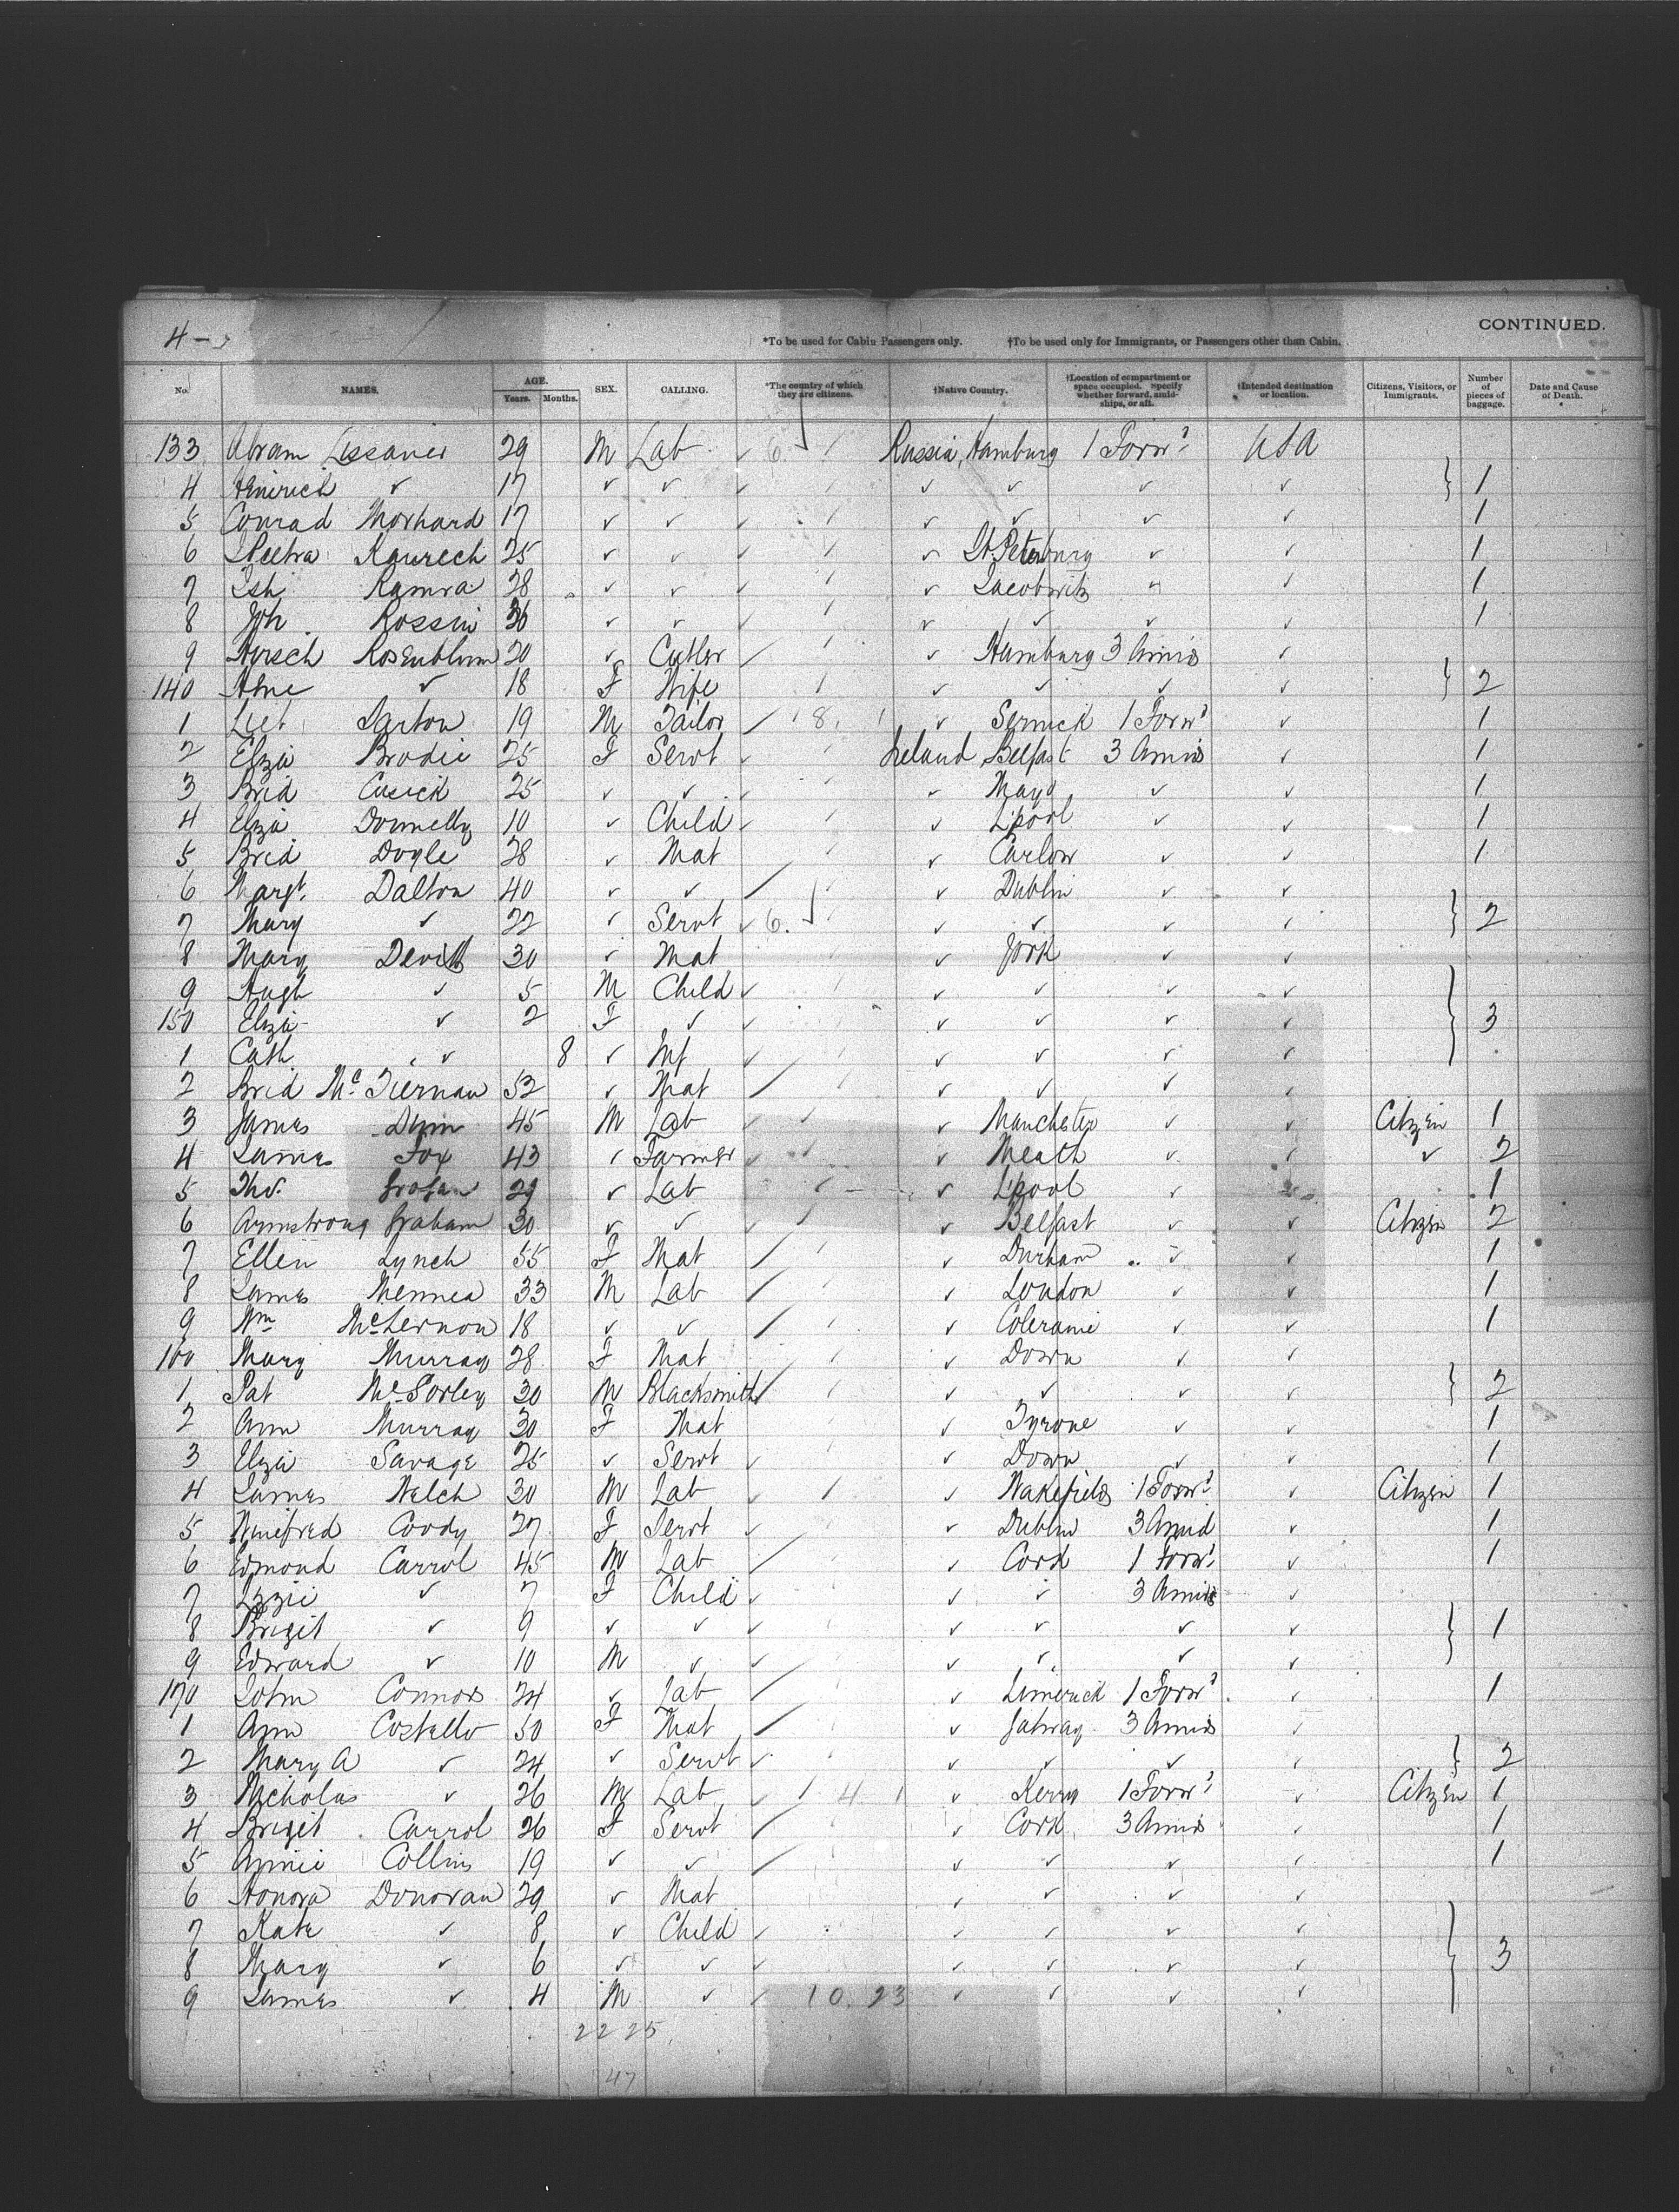 4 -
CONTINUED.
*To be used for Cabin Passengers only. †To be used only for Immigrants, or Passengers other than Cabin.
No. NAMES. AGE. Years. Months. SEX. CALLING. *The country of which they are citizens. †Native Country. †Location of compartment or space occupied. Specify whether forward, amidships, or aft. †Intended destination or location. Citizens, Visitors, or Immigrants. Number of pieces of baggage. Date and Cause of Death.
133 Abram 29 M Lab 6 Russia, Hamburg 1 Forwd USA
4 Heinrich ✓ 17 ✓ ✓ ✓ ✓ ✓ ✓ } 1
5 Conrad Morhard 17 ✓ ✓ ✓ ✓ ✓ ✓ 1
6 25 ✓ ✓ ✓ St. Petersburg ✓ ✓ 1
7 Ish Kamra 28 ✓ ✓ ✓ ✓ 1
8 Joh Rossin 36 ✓ ✓ ✓ ✓ ✓ ✓ 1
9 Hersch Rosenblum 20 ✓ Cutler ✓ Hamburg 3 Amids ✓
140 ✓ 18 F Wife ✓ ✓ ✓ ✓ } 2
1 Sarton 19 M Tailor 8 ✓ 1 Forwd ✓ 1
2 Eliza Brodie 25 F Servt Ireland Belfast 3 Amids ✓ 1
3 Brid Cusick 25 ✓ ✓ ✓ Mayo ✓ ✓ 1
4 Eliza Donnelly 10 ✓ Child ✓ L'pool ✓ ✓ 1
5 Brid Doyle 28 ✓ Mat ✓ Carlow ✓ ✓ 1
6 Margt. Dalton 40 ✓ ✓ ✓ Dublin ✓ ✓
7 Mary ✓ 22 ✓ Servt 6 ✓ ✓ ✓ ✓ } 2
8 Mary Devitt 30 ✓ Mat ✓ York ✓ ✓
9 Hugh ✓ 5 M Child ✓ ✓ ✓ ✓
150 Eliza ✓ 2 F ✓ ✓ ✓ ✓ ✓ } 3
1 Cath ✓ 8 ✓ Inf ✓ ✓ ✓ ✓
2 Brid Mc Tiernan 52 ✓ Mat ✓ ✓ ✓ ✓
3 James Dunn 45 M Lab ✓ Manchester ✓ ✓ Citizen 1
4 James Fox 43 ✓ Farmer ✓ Meath ✓ ✓ ✓ 2
5 Tho. Grogan 29 ✓ Lab ✓ L'pool ✓ ✓ 1
6 Armstrong Graham 30 ✓ ✓ ✓ Belfast ✓ ✓ Citizen 2
7 Ellen Lynch 55 F Mat ✓ Durham ✓ ✓ 1
8 James Mennea 33 M Lab ✓ London ✓ ✓ 1
9 Wm McLernon 18 ✓ ✓ ✓ Coleraine ✓ ✓ 1
160 Mary Murray 28 F Mat ✓ Down ✓ ✓
1 Pat McSorley 30 M Blacksmith ✓ ✓ ✓ ✓ } 2
2 Ann Murray 30 F Mat ✓ Tyrone ✓ ✓ 1
3 Eliza Savage 25 ✓ Servt ✓ Down ✓ ✓ 1
4 James Welch 30 M Lab ✓ Wakefield 1 Forwd ✓ Citizen 1
5 Winefred Coody 27 F Servt ✓ Dublin 3 Amid ✓ 1
6 Edmond Carrol 45 M Lab ✓ Cork 1 Forwd ✓ 1
7 Lizzie ✓ 7 F Child ✓ ✓ 3 Amids ✓
8 Brigit ✓ 9 ✓ ✓ ✓ ✓ ✓ ✓ } 1
9 Edward ✓ 10 M ✓ ✓ ✓ ✓ ✓
170 John Connors 24 ✓ Lab ✓ Limerick 1 Forwd ✓ 1
1 Ann Costello 50 F Mat ✓ Galway 3 Amids ✓
2 Mary A ✓ 24 ✓ Servt ✓ ✓ ✓ ✓ } 2
3 Nicholas ✓ 26 M Lab 4 ✓ Kerry 1 Forwd ✓ Citizen 1
4 Brigit Carrol 26 F Servt ✓ Cork 3 Amids ✓ 1
5 Annie Collins 19 ✓ ✓ ✓ ✓ ✓ ✓ 1
6 Honora Donovan 29 ✓ Mat ✓ ✓ ✓ ✓
7 Kate ✓ 8 ✓ Child ✓ ✓ ✓ ✓
8 Mary ✓ 6 ✓ ✓ ✓ ✓ ✓ ✓ } 3
9 James ✓ 4 M ✓ 10. 23 ✓ ✓ ✓ ✓
22 25
47